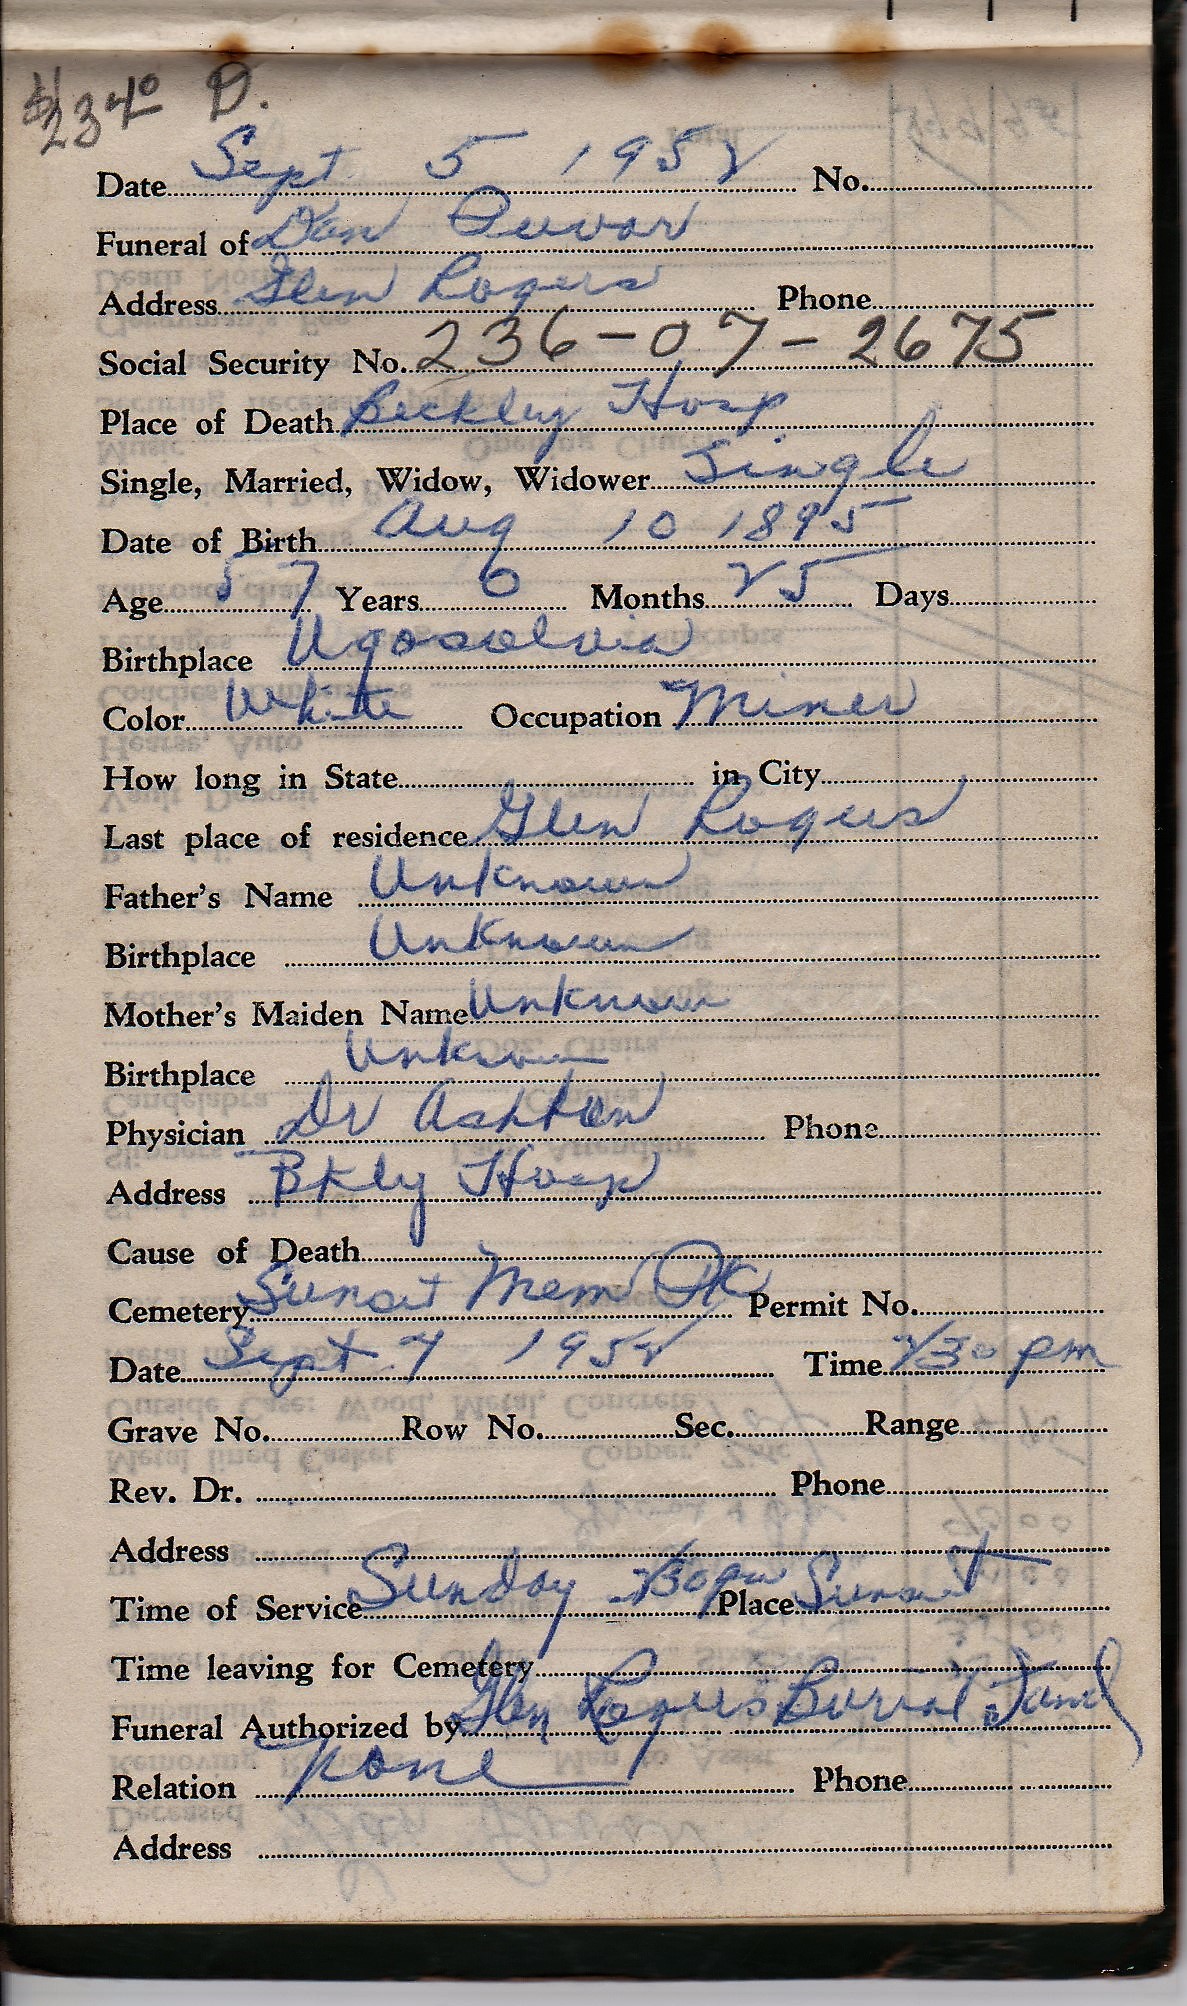 $2340 D.
Date Sept. 5 1952 No.
Funeral of Dan
Address Glen Rogers Phone
Social Security No. 236-07-2675
Place of Death Beckley Hosp
Single, Married, Widow, Widower Single
Date of Birth Aug 10 1895
Age 57 Years 0 Months 25 Days
Birthplace Ugosolvia
Color White Occupation Miner
How long in State in City
Last place of residence Glen Rogers
Father's Name Unknown
Birthplace Unknown
Mother's Maiden Name Unknown
Birthplace Unknown
Physician Dr Ashton Phone
Address Bkly Hosp
Cause of Death
Cemetery Sunset Mem Pk Permit No.
Date Sept 7 1952 Time 2/30 pm
Grave No. Row No. Sec. Range
Rev. Dr. Phone
Address
Time of Service Sunday 2/30 pm Place Sunset
Time leaving for Cemetery
Funeral Authorized by Glen Rogers Burial Fund
Relation None Phone
Address